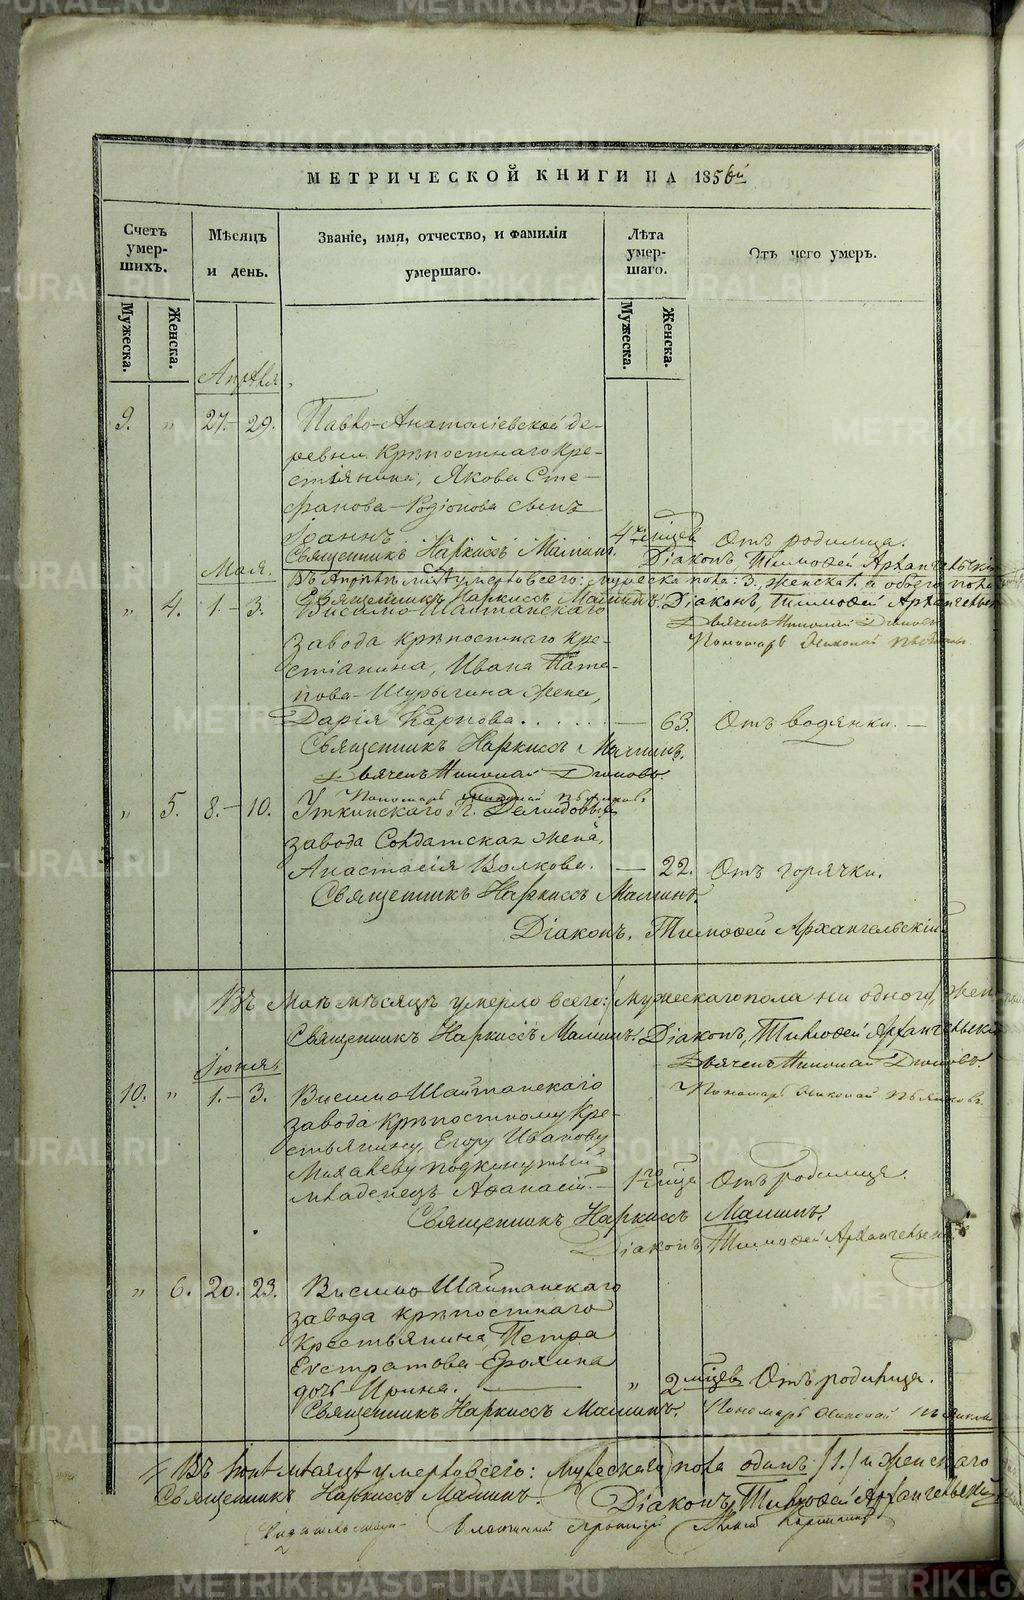 МЕТРИЧЕСКОЙ КНИГИ НА 1856й
Счетъ умер-шихъ.
Мѣсяцъ и день.
Званіе, имя, отчество, и фамилія умершаго.
Лѣта умер-шаго.
Отъ чего умеръ.
Мужеска.
Женска.
Мужеска.
Женска.
Апрѣля
9. " 27.- 29. Павло-Анатоліевской де-
ревни Крѣпостнаго Кре-
стіянина, Якова Сте-
фанова Родіонова сынъ
Іоаннъ 4хъ мцевъ Отъ родимца.
Священникъ Наркиссъ Маминъ. Діаконъ, Тимоѳей Архангельскій
Мая.
Въ Апрѣлѣ умерло всего: мужеска пола: 3., женска 1. а обоего пола
Священникъ Наркиссъ Маминъ. Діаконъ, Тимоѳей Архангельскій
" 4. 1.- 3. Висимо-Шайтанскаго
завода крѣпостнаго кре-
стіанина, Ивана
Шурыгина жена,
Дарія Карпова. — 63. Отъ водянки. —
Дьячекъ Николай
Пономарь Николай
Священникъ Наркиссъ Маминъ.
Дьячекъ Николай
Пономарь Николай
" 5. 8.- 10. Уткинскаго Г. Демидовыхъ
завода Солдатская жена,
Анастасія Волкова. — 22. Отъ горячки.
Священникъ Наркиссъ Маминъ.
Діаконъ, Тимоѳей Архангельскій
Въ Маѣ мѣсяцѣ умерло всего: мужескаго пола ни одного,
Священникъ Наркиссъ Маминъ. Діаконъ, Тимоѳей Архангельскій
Дьячекъ Николай
Пономарь Николай
Іюня
10. " 1.- 3. Висимо Шайтанскаго
завода крѣпостному кре-
стьянину, Егору Иванову
Михалеву подкинутый
младенецъ Аѳанасій. — 1го мца Отъ родимца.
Священникъ Наркиссъ Маминъ.
Діаконъ, Тимоѳей Архангельскій
" 6. 20. 23. Висимо Шайтанскаго
завода крѣпостнаго
крестьянина, Петра
Евстратова Ерохина
дочь Ирина. — " 2 мцевъ Отъ родимца.
Священникъ Наркиссъ Маминъ. Пономарь Николай
Въ Іюнѣ мѣсяцѣ умерло всего: Мужескаго пола одинъ (1.) и женскаго
Священникъ Наркиссъ Маминъ. Діаконъ, Тимоѳей Архангельскій
METRIKI.GASO-URAL.RU